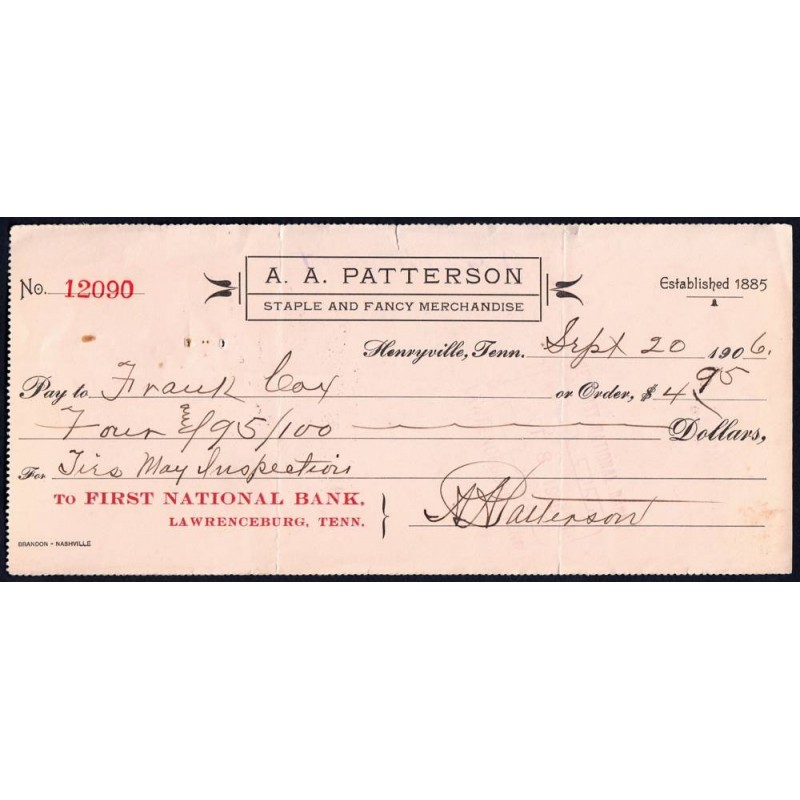 No. 12090
A. A. PATTERSON
STAPLE AND FANCY MERCHANDISE
Established 1885
Henryville, Tenn. Sept 20 1906.
Pay to Frank Cox or Order, $ 4 95
Four & 95/100 Dollars,
For Ties May Inspection
TO FIRST NATIONAL BANK,
LAWRENCEBURG, TENN.
A A Patterson
BRANDON - NASHVILLE